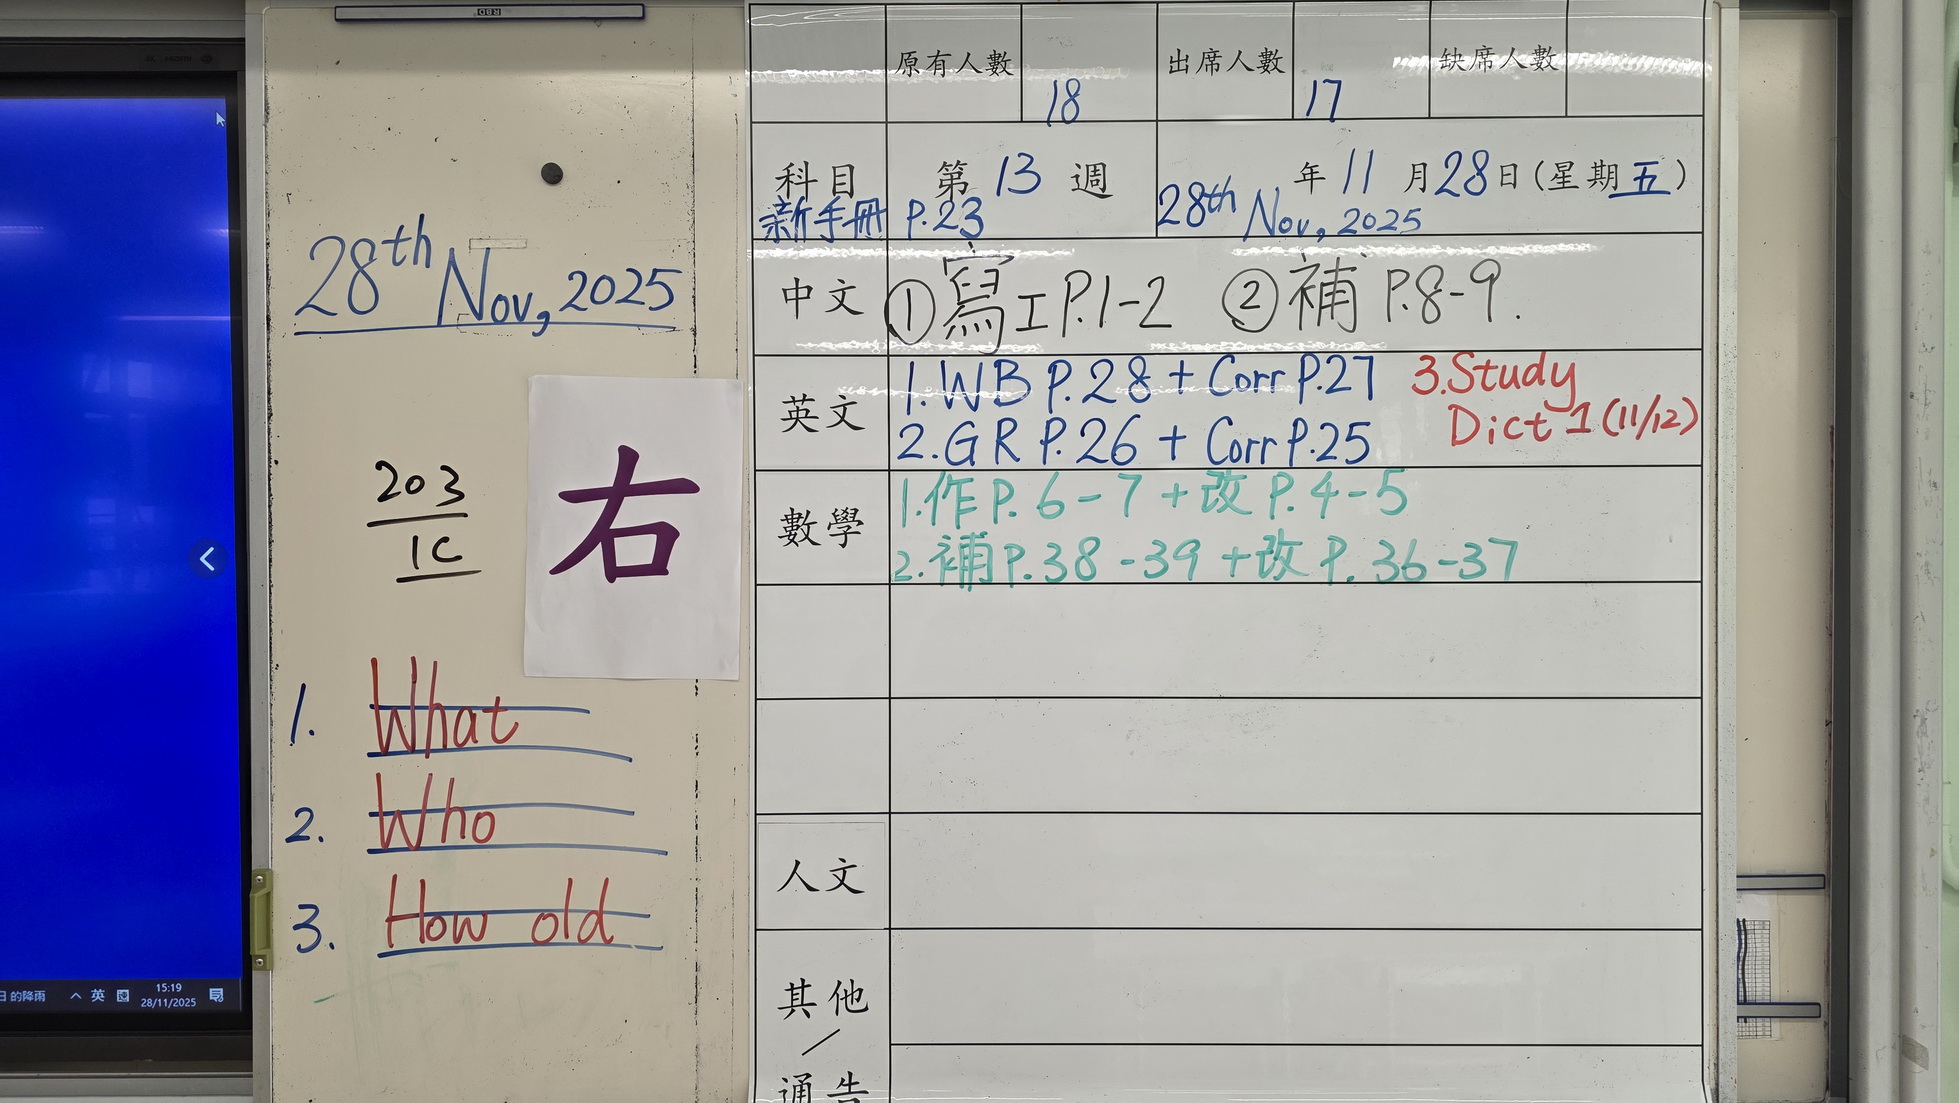 28th Nov, 2025
203
1C
右
1. What
2. Who
3. How old
日的降雨 英 15:19
28/11/2025
原有人數 18 出席人數 17 缺席人數
科目 第 13 週 年 11 月 28 日 (星期 五)
新手冊 P.23 28th Nov, 2025
中文 ① 寫工 P.1-2 ② 補 P.8-9.
英文 1. WB P.28 + Corr P.27 3. Study
2. GR P.26 + Corr P.25 Dict 1 (11/12)
數學 1. 作 P. 6-7 + 改 P. 4-5
2. 補 P.38-39 + 改 P. 36-37
人文
其他
/
通告